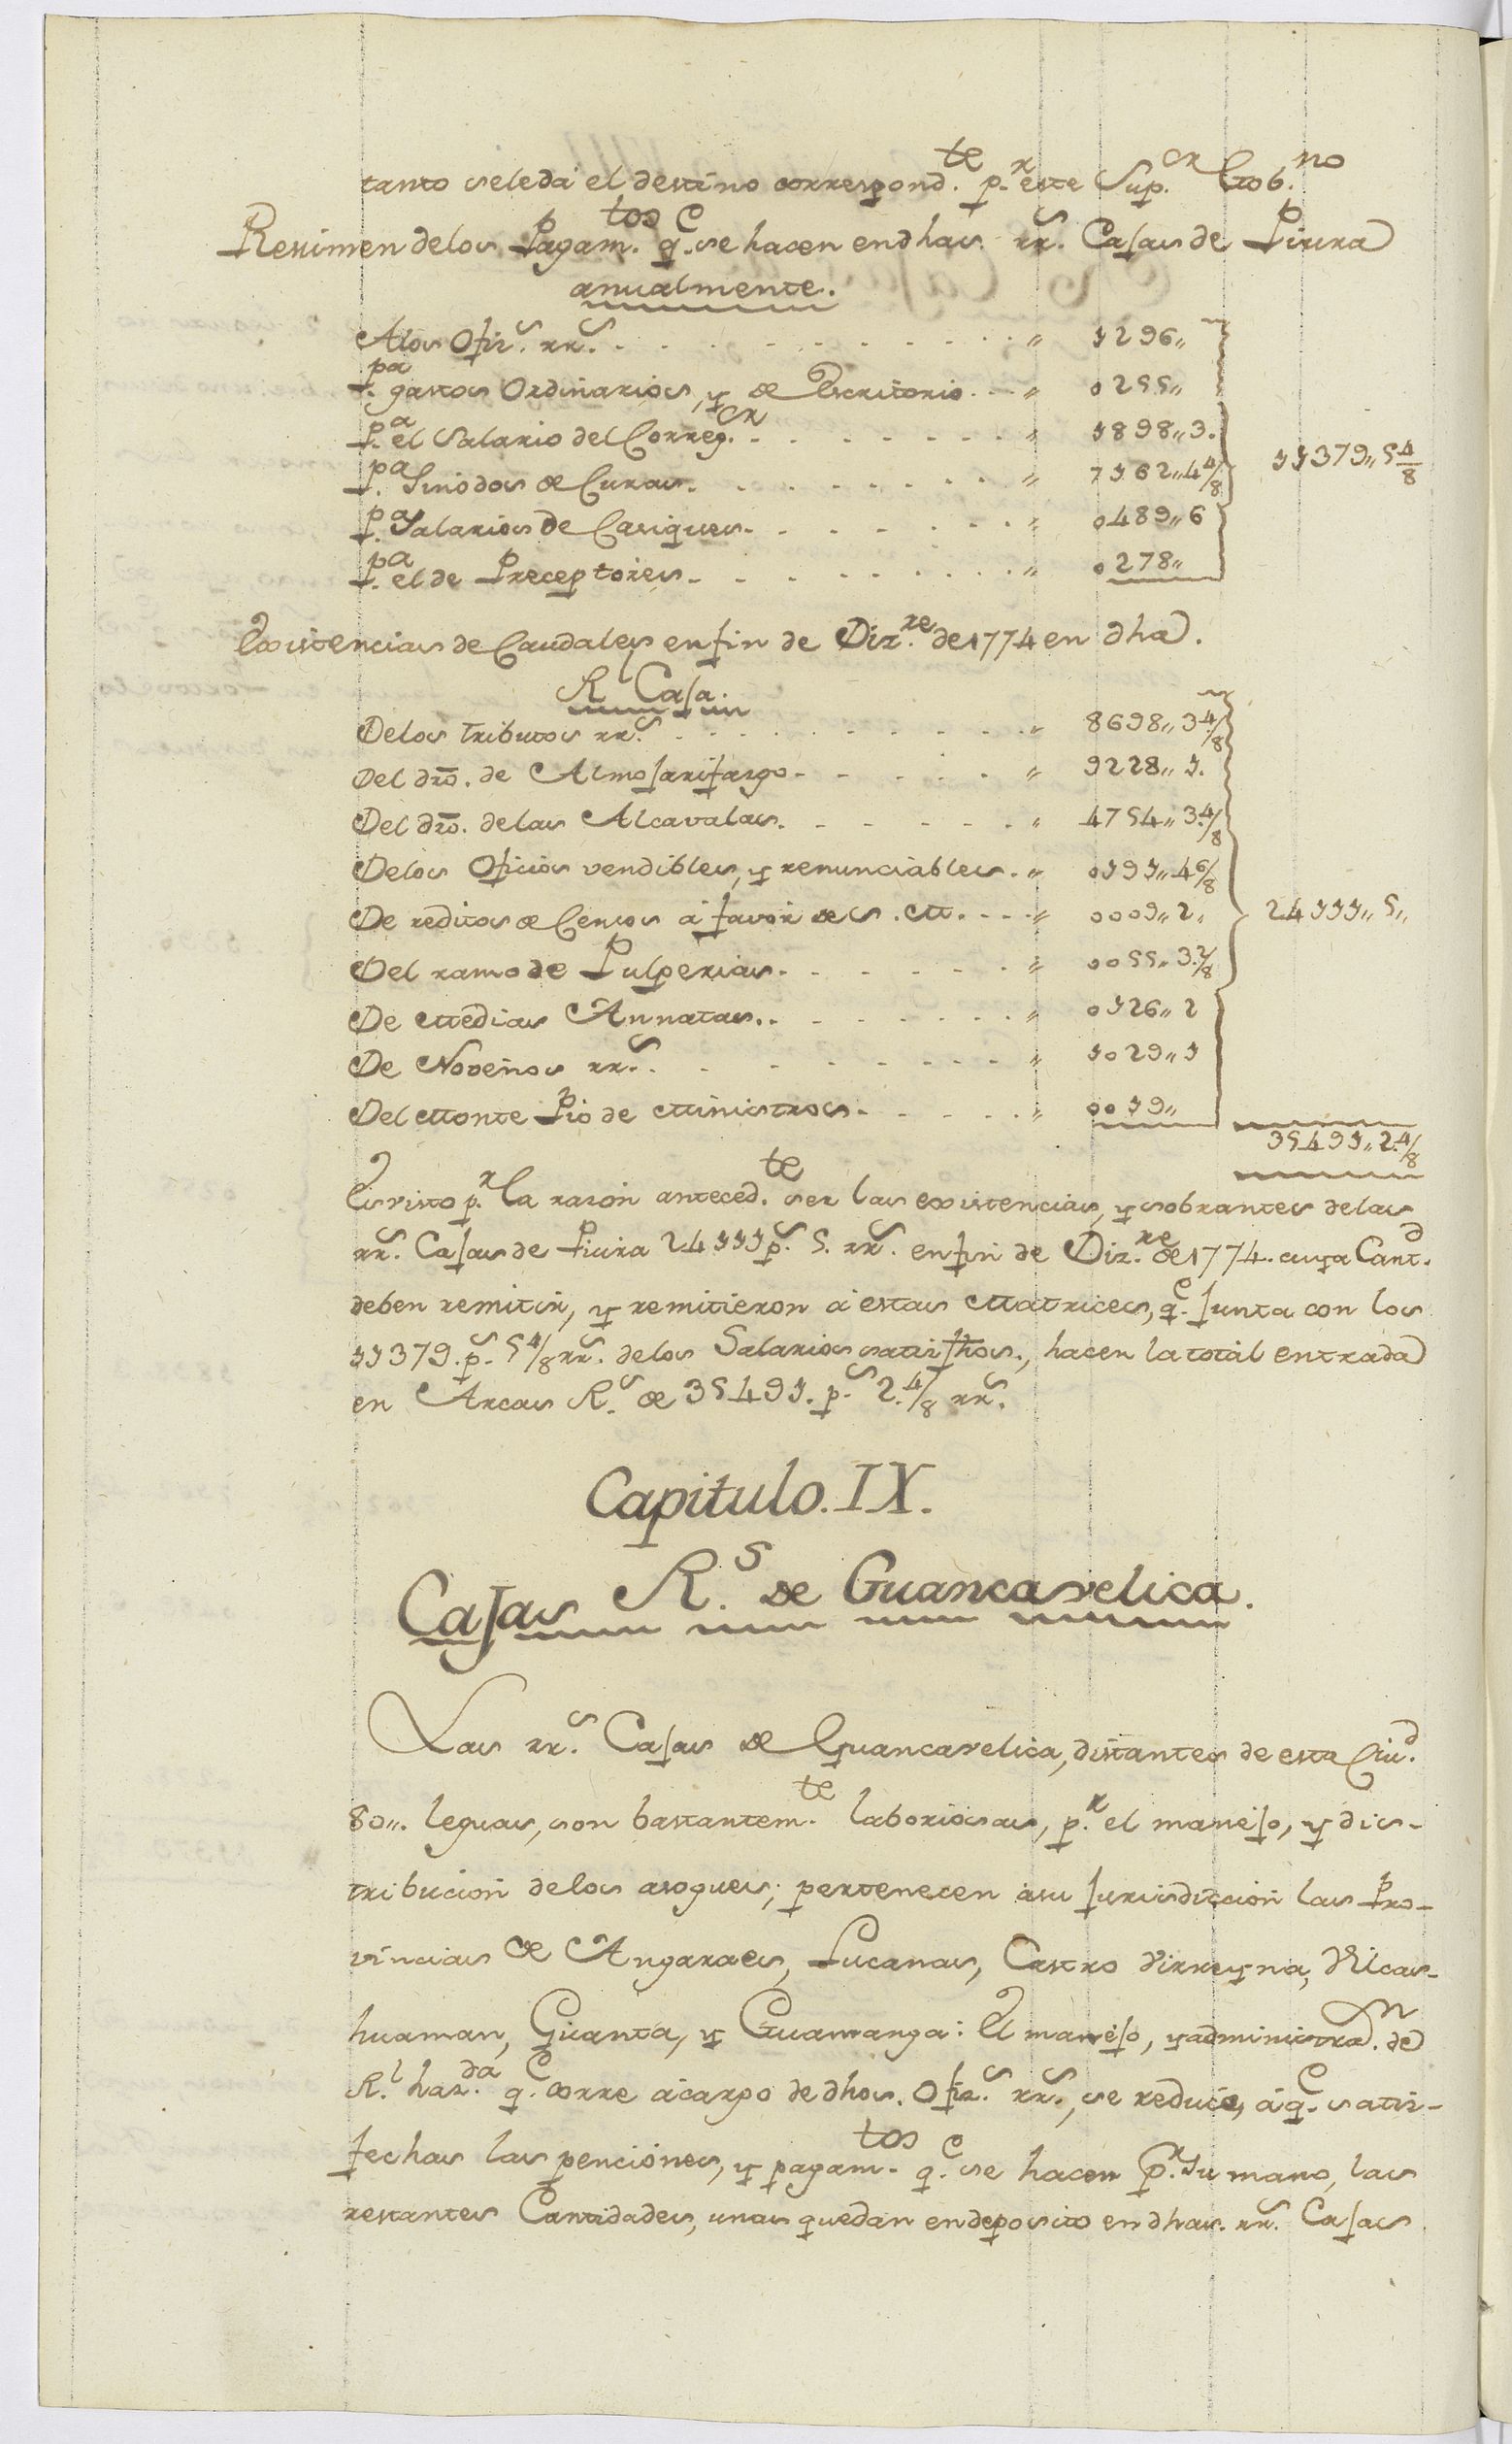 tanto seleda el destino correspond.te p.r este Sup.or Gob.no
Resimen delos Pagam.tos q.e se hacen endhas rr.s Cajas de Piura
anualmente.
Alos Ofiz.s rr.s . . . . . . . . . . " 1296"
p.a gastos Ordinarios, y de Escritorio. - " 0255"
p.a el Salario del Correg.or . . . . . . " 1898" 3.
p.a Sinodos de Curas. . . . . . . . " 7162" 4 4/8 11379" 5 4/8
p.a Salarios de Casiques. . . . . . . " 0489" 6
p.a el de Preceptores. . . . . . . . " 0278"
Existencias de Caudales enfin de Diz.re de 1774 en dha.
R.l Caja.
Delos tributos rr.s . . . . . . . . " 8698" 3 4/8
Del dro. de Almojarifasgo. . . . . . " 9228" 1.
Del dro. delas Alcavalas. . . . . . . " 4754" 3 4/8
Delos Oficios vendibles, y renunciables. " 0191" 4 6/8
De reditos de Censos á favor de S. M. . . . " 0009" 2. 24111" 5"
Del ramo de Pulperias. . . . . . . " 0055" 3 2/8
De Medias Annatas. . . . . . . . " 0126" 2
De Novenos rr.s . . . . . . . . " 1029" 1
Del Monte Pio de Ministros. . . . . . " 0019"
35491" 2 4/8
Es visto p.r la razon anteced.te ser las existencias, y sobrantes delas
rr.s Cajas de Piura 24111 p.s 5. rr.s enfin de Diz.re de 1774. cuya Cant.d
deben remitir, y remitieron á estas Matrices, q.e junta con los
11379. p.s 5 4/8 rr.s delos Salarios satisfhos., hacen la total entrada
en Arcas R.s de 35491. p.s 2. 4/8 rr.s
Capitulo. IX.
Cajas R.s de Guancavelica.
Las rr.s Cajas de Guancavelica, distantes de esta Ciu.d
80". leguas, son bastantem.te laboriosas, p.r el manejo, y dis-
tribucion delos asogues; pertenecen asu jurisdiccion las Pro-
vincias de Angaraes, Lucanas, Castro Virreyna, Vilcas-
huaman, Guanta, y Guamanga: El manejo, y administra.on de
R.l haz.da q.e corre ácargo de dhos. Ofiz.s rr.s, se reduce, á q.e satis-
fechas las penciones, y pagam.tos q.e se hacen p.r su mano, las
restantes Cantidades, unas quedan endeposito en dhas. rr.s Cajas